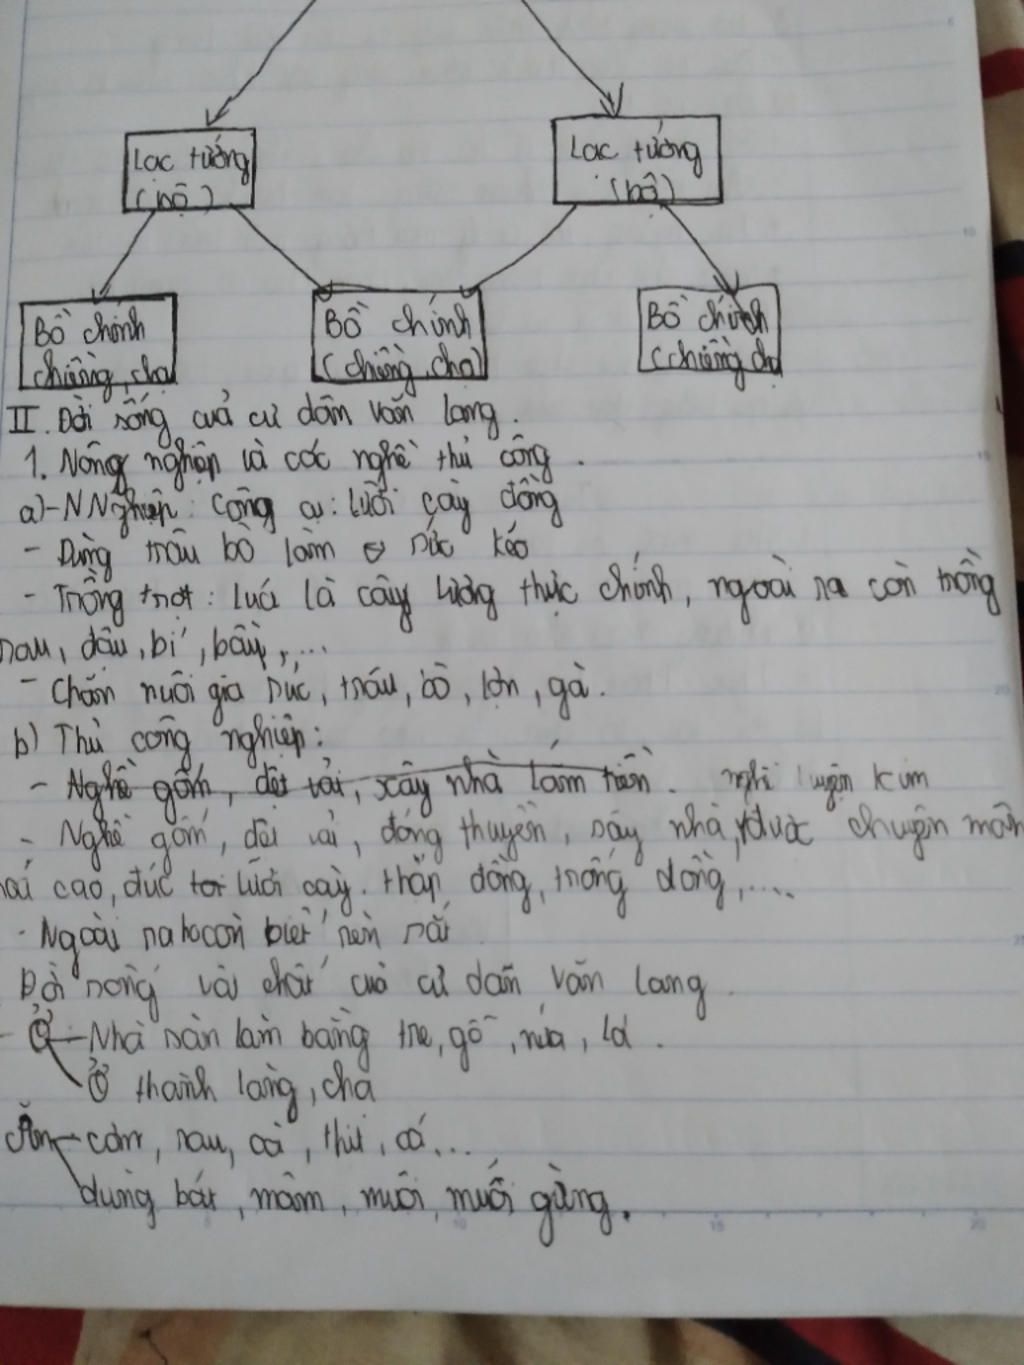 Lạc tướng
(bộ)
Lạc tướng
(bộ)
Bồ chính
chiềng, chạ
Bồ chính
(chiềng, chạ)
Bồ chính
(chiềng chạ
II. Đời sống cuả cư dân văn lang.
1. Nông nghiệp và các nghề thủ công.
a)-N Nghiệp: Công cụ: lưỡi cày đồng
- Dùng trâu bò làm sức kéo
- Trồng trọt: luá là cây lương thực chính, ngoài ra còn trồng
rau, đâu, bí, bầu,,...
- Chăn nuôi gia súc, trâu, bò, lợn, gà.
b) Thủ công nghiệp:
- Nghề gốm, dệt vải, xây nhà làm nghề luyện kim
- Nghề gốm, dệt vải, đóng thuyền, xây nhà, được chuyện môn
cao, đúc lưỡi cày. thấp đồng, trống đồng,....
- Ngoài ra họ còn biết rèn sắt
Đời sống vật chất cuả cư dân văn lang.
- Ở - Nhà sàn làm bằng tre, gỗ, nứa, lá.
Ở thành làng, chạ
Ăn - cơm, rau, cà, thịt, cá...
dùng bát, mâm, muôi, muối gừng.